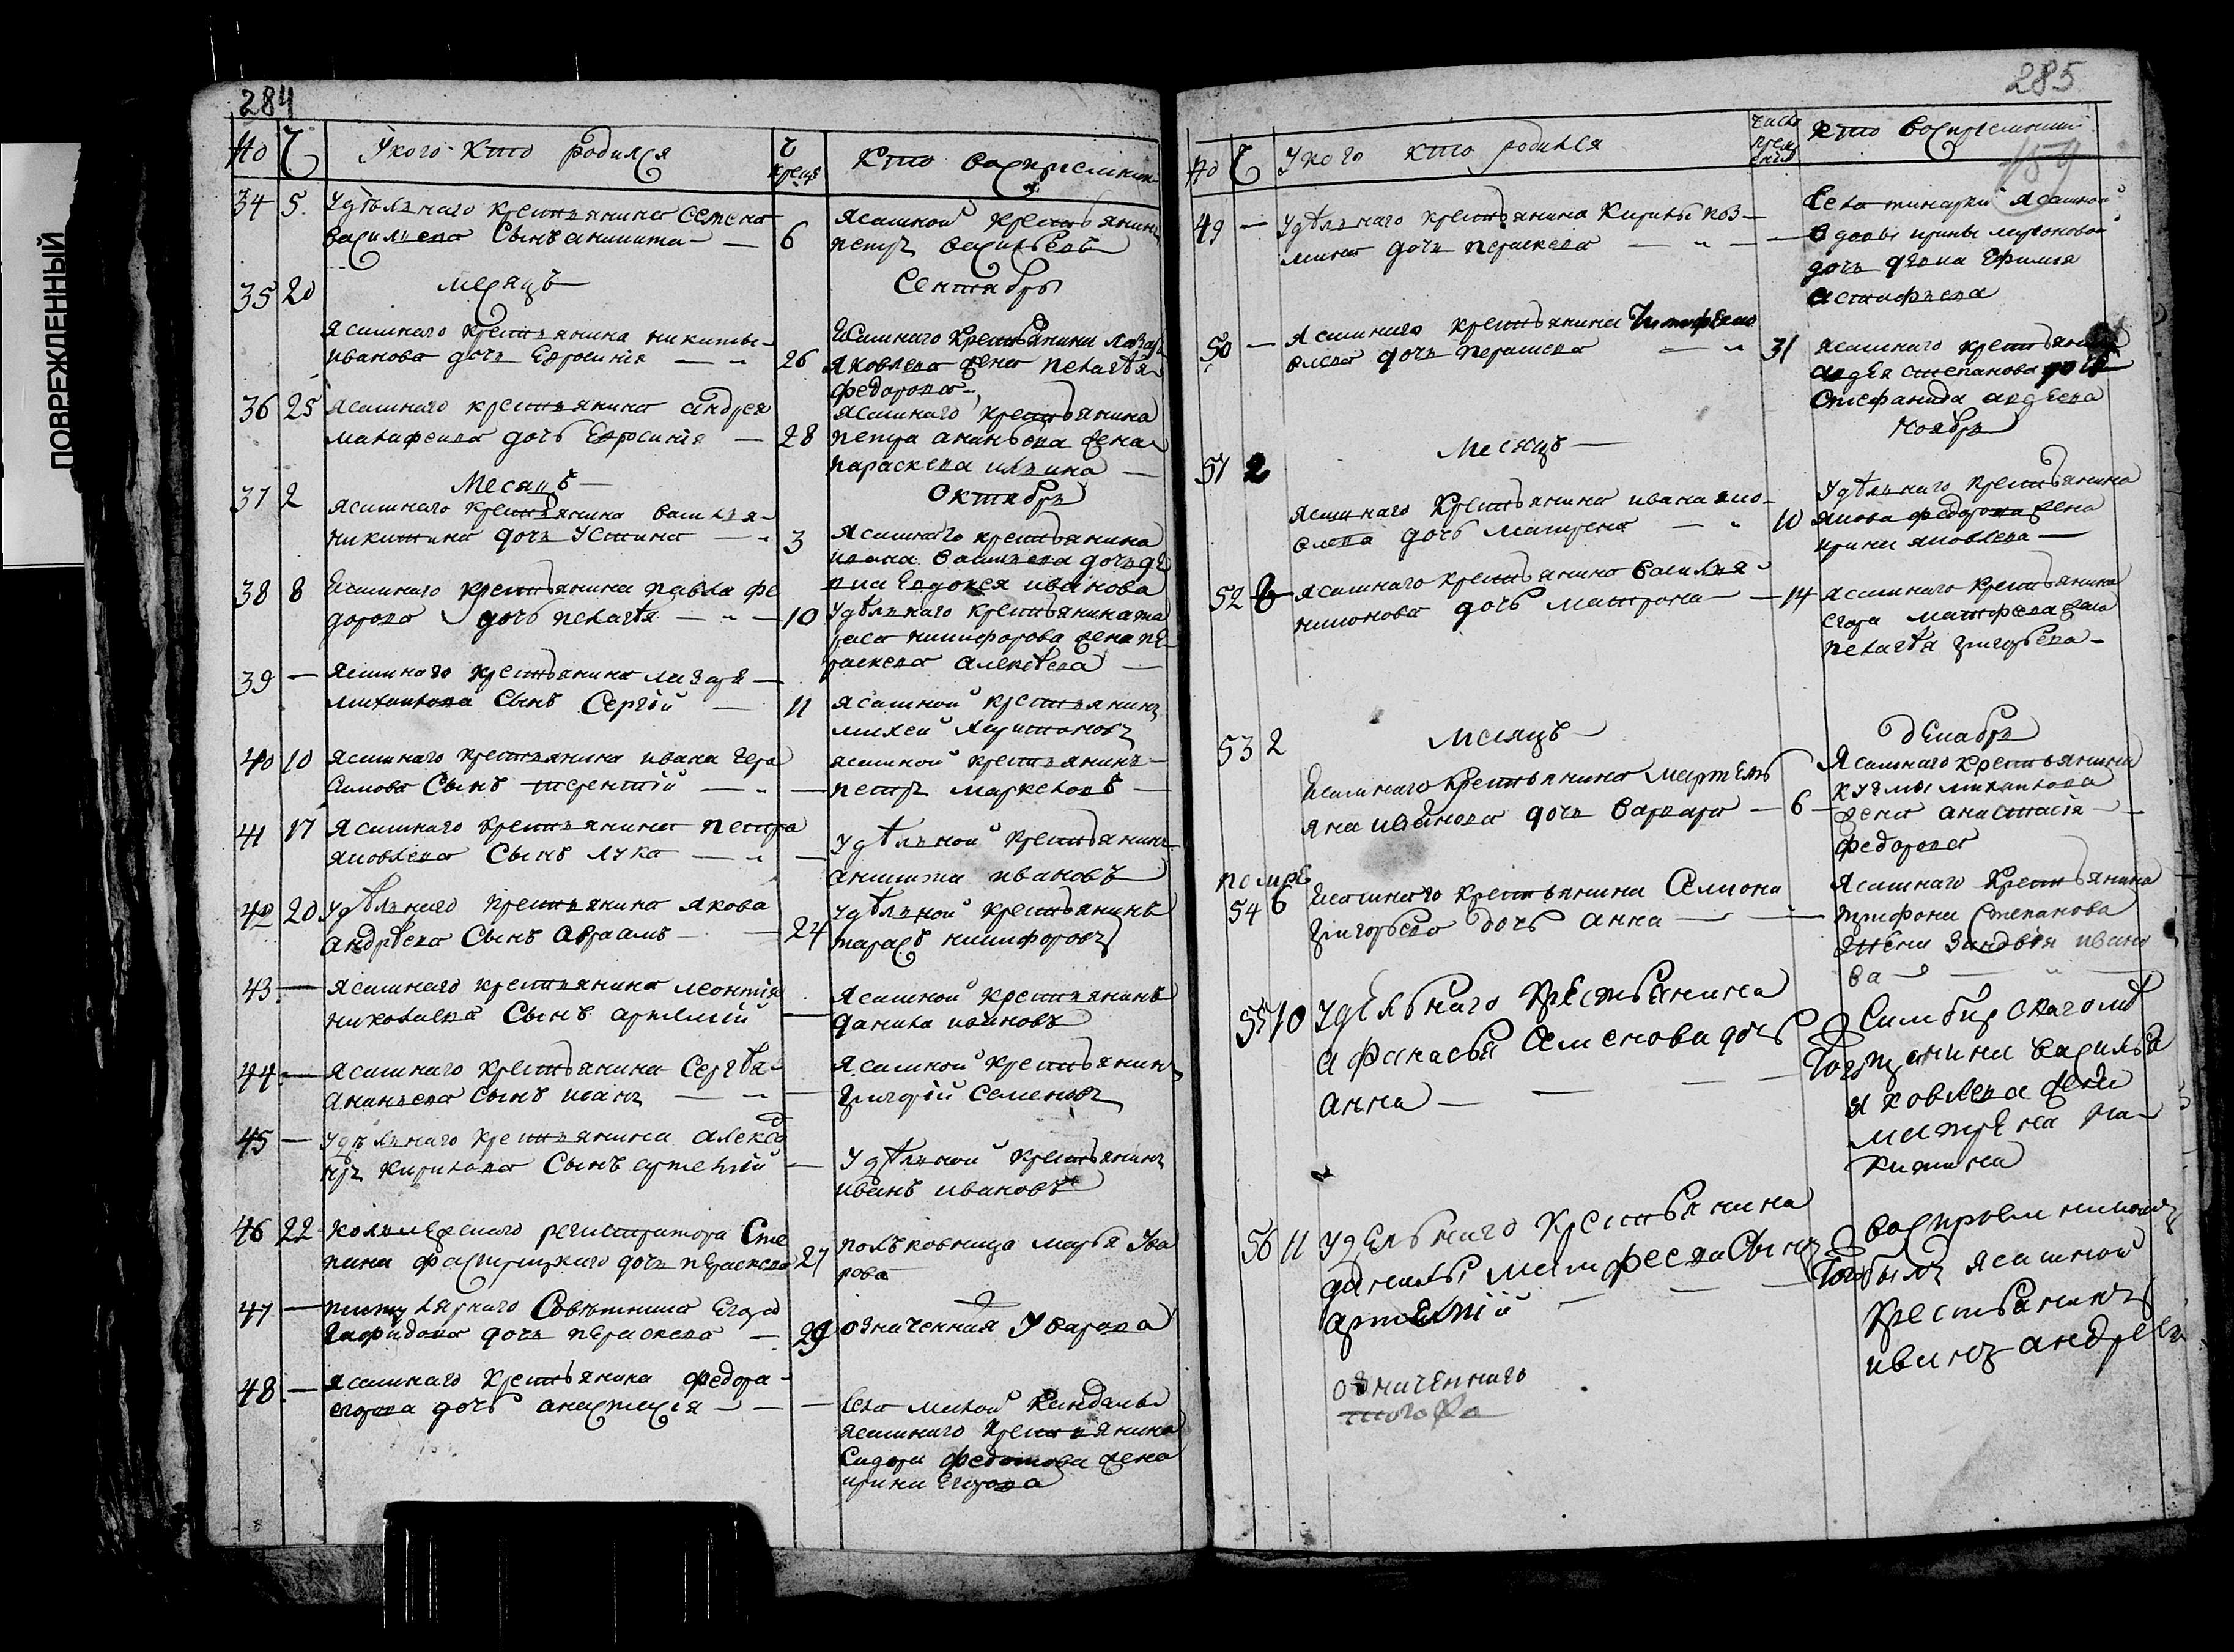 ПОВРЕЖДЕННЫЙ
284
№ Ч У кого кто родился Ч креще кто восприемник
34 5. Удѣльнаго крестьянина семена
василиева сынъ аникита — 6 ясашной крестьянинъ
петръ васильевъ
35 20 месяцъ Сентябрь
ясашнаго крестьянина никиты
иванова дочь Евросинія — 26 Ясашнаго крестьянина лазаря
яковлева жена пелагѣя
федорова
36 25 ясашнаго крестьянина андрея
малафеива дочь Евросинія — 28 ясашнаго крестьянина
петра ананьева жена
параскева ильина —
37 2 Месяцъ — Октябрь
ясашнаго крестьянина василья
никитина дочь Устина — 3 ясашнаго крестьянина
ивана васильева дочь де
вка Евдокея иванова
38 8 Ясашнаго крестьянина павла фе
дорова дочь пелагѣя — 10 Удѣльнаго крестьянина та
раса никифорова жена пе
раскева алексѣева —
39 — Ясашнаго крестьянина лазаря —
михаилова Сынъ Сергiй — 11 ясашной крестьянинъ
михей харитоновъ
40 10 ясашнаго крестьянина ивана гера
симова Сынъ терентiй — — ясашной крестьянинъ
петръ маркеловъ —
41 17 Ясашнаго крестьянина петра
яковлева Сынъ лука — — удѣльной крестьянинъ
аникита ивановъ
42 20 Удѣльнаго крестьянина якова
андрѣева Сынъ авраамъ — 24 удѣльной крестьянинъ
тарасъ никифоровъ
43 — ясашнаго крестьянина леонтiя
николаева Сынъ артемiй — ясашной крестьянинъ
данила ивановъ
44 — ясашнаго крестьянина Сергѣя
ананьева сынъ иванъ — — ясашной крестьянинъ
григорiй семеновъ
45 — удѣльнаго крестьянина алексд
нръ кирилова Сынъ артемiй — Удѣльной крестьянинъ
иванъ ивановъ
46 22 колежскаго регистратора Сте
пана дочь пераскева 27 полковница марья Ува
рова
47 — титулярнаго Совѣтника Егора
дочь пераскева — 29 означенная Уварова
48 — ясашнаго крестьянина федора
егорова дочь анастасiя — — Села малой Кандалы
ясашнаго крестьянина
Сидора федотова жена
ирина Егорова
285
159
№ Ч У кого кто родился числа крещения кто восприемники
49 — Удѣльнаго крестьянина Кирилы коз-
мина дочь пераскева — — Села тинарки ясашной
вдовы ирины
дочь девка Ефимия
астафьева
50 — Ясашнаго крестьянина
влева дочь пераскева — 31 ясашнаго крестьянина
авдея степанова дочь
Стефанида авдеева
51 2 Месяцъ — Ноябрь
ясашнаго крестьянина ивана яко-
влева дочь матрена — 10 Удѣльнаго крестьянина
якова федорова жена
ирина яковлева —
52 8 ясашнаго крестьянина василья
никонова дочь матрона — 14 ясашнаго крестьянина
егора матфеева жена
пелагѣя григорьева —
53 2 месяцъ — декабрь
Ясашнаго крестьянина мартемь
яна иванова дочь варвара — 6 — Ясашнаго крестьянина
кузмы михаилова
жена анастасiя —
федорова
помре
54 6 Ясашнаго крестьянина Семиона
григорьева дочь анна — — Ясашнаго крестьянина
трифона Степанова
жена Зиновiя ивано
ва —
55 10 Удельнаго крестьянина
афанасья Семенова дочь
анна — — — Того Симбирскаго
василья
яковлева жена
матрена ни-
китина
56 11 Удельнаго крестьянина
данилы матфеева сынъ
артемiй — — Того восприемникомъ
былъ ясашной
крестьянинъ
иванъ андреевъ
означеннаго